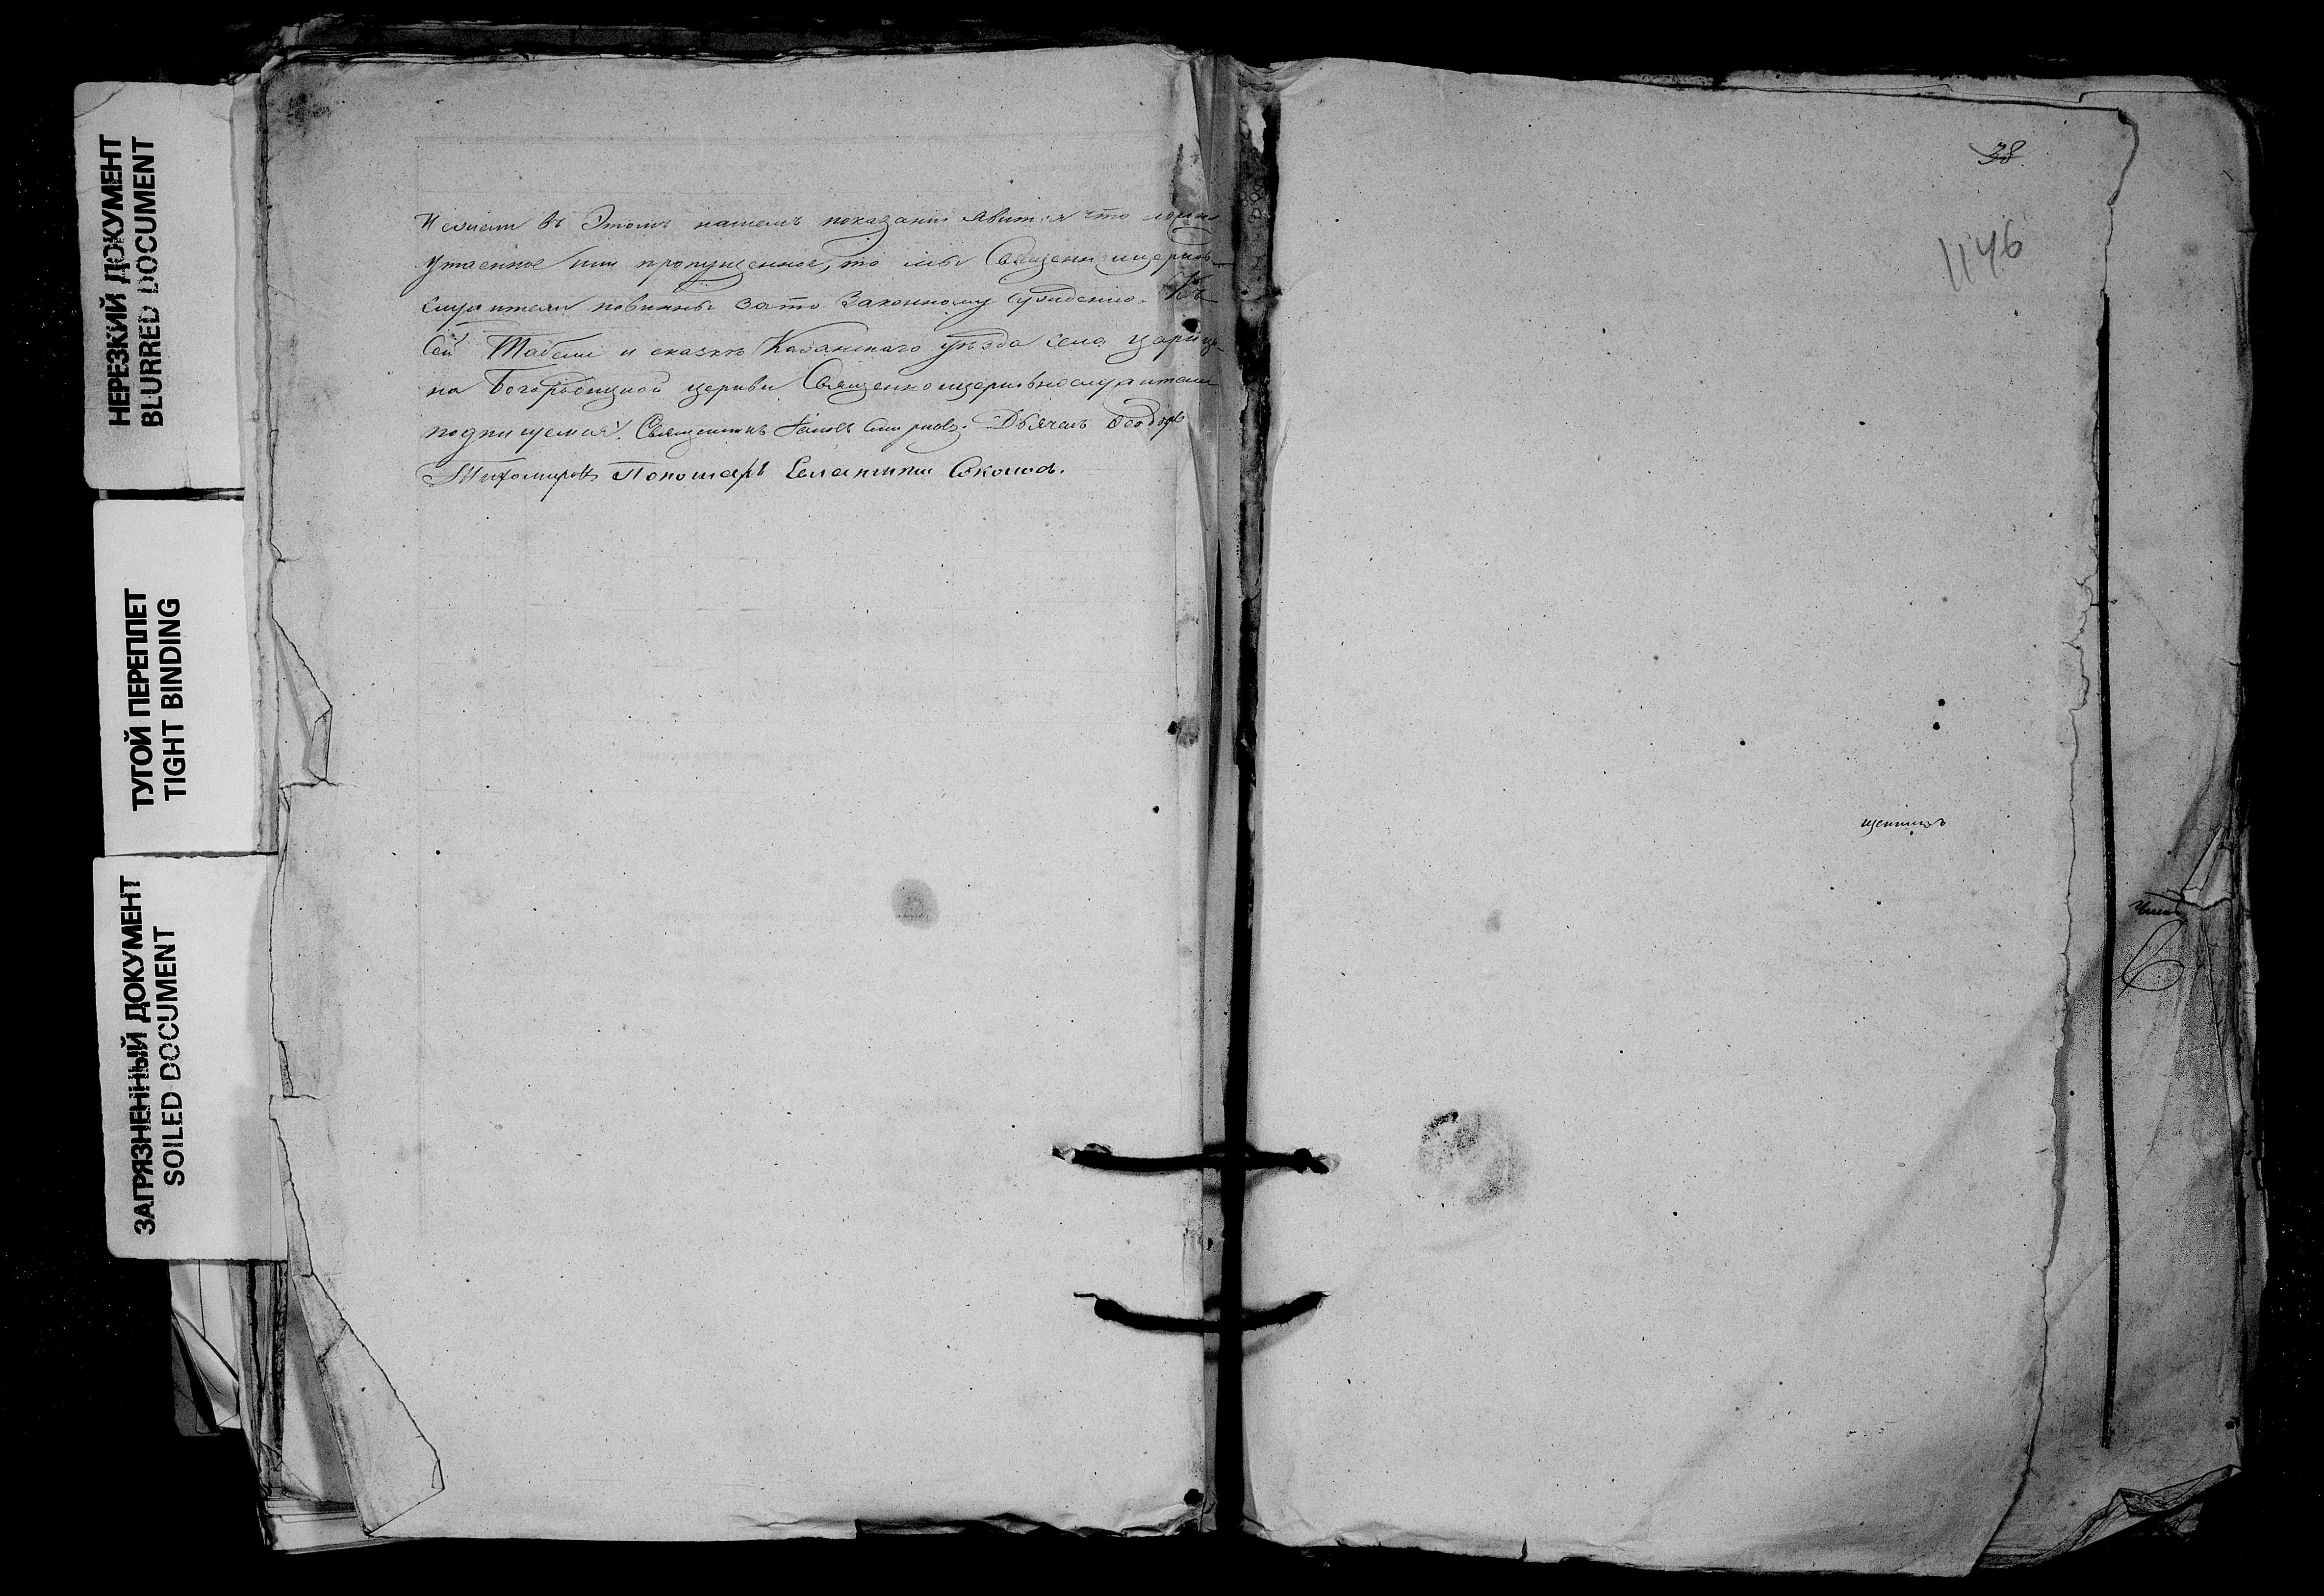 НЕРЕЗКИЙ ДОКУМЕНТ
BLURRED DOCUMENT
ТУГОЙ ПЕРЕПЛЕТ
TIGHT BINDING
ЗАГРЯЗНЕННЫЙ ДОКУМЕНТ
SOILED DOCUMENT
въ Этомъ нашемъ показании явится что
утаенное или пропущенное, то мы Священноцерков-
служители повинны зато Законному суждению. Къ
сей Табели и сказкѣ Казанскаго уѣзда села Цариц-
на Богородицкой церкви Священноцерковнослужители
подпищемся. Священникъ Іаковъ Смирновъ. Дьячекъ Ѳеодоръ
Тихомировъ Пономарь
38
1146
щенникъ
6